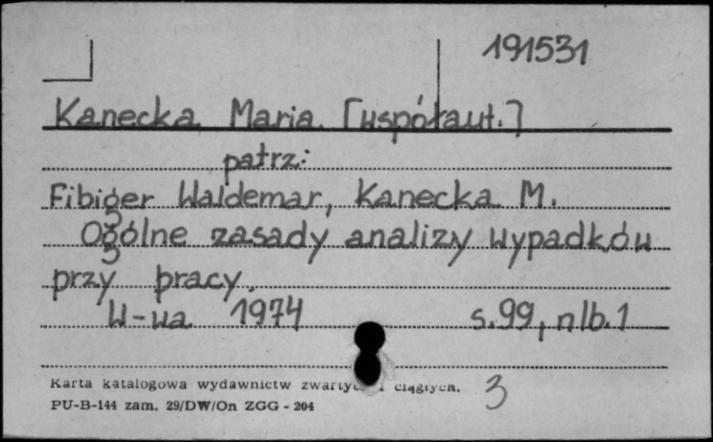 191531
Kanecka Maria [współaut.]
patrz:
Fibiger Waldemar, Kanecka M.
Ogólne zasady analizy wypadków
przy pracy.
W-wa 1974 s. 99, nlb. 1
Karta katalogowa wydawnictw ciągłych. 3
PU-B-144 zam. 29/DW/On ZGG - 204